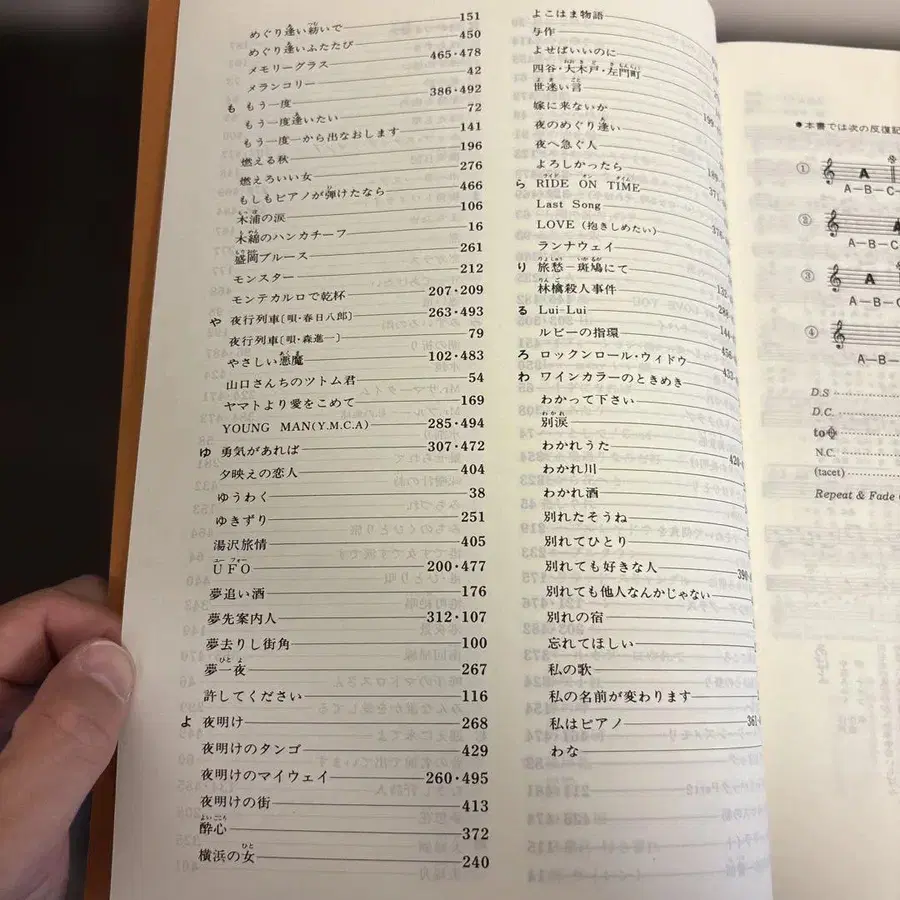 めぐり逢い紡いで 151
めぐり逢いふたたび 450
メモリーグラス 465・478
メランコリー 42
も もう一度 386・492
もう一度逢いたい 72
もう一度一から出なおします 141
燃える秋 196
燃えろいい女 276
もしもピアノが弾けたなら 466
木浦の涙 106
木綿のハンカチーフ 16
盛岡ブルース 261
モンスター 212
モンテカルロで乾杯 207・209
や 夜行列車〔唄・春日八郎〕 263・493
夜行列車〔唄・森進一〕 79
やさしい悪魔 102・483
山口さんちのツトム君 54
ヤマトより愛をこめて 169
YOUNG MAN(Y.M.C.A) 285・494
ゆ 勇気があれば 307・472
夕映えの恋人 404
ゆうわく 38
ゆきずり 251
湯沢旅情 405
UFO 200・477
夢追い酒 176
夢先案内人 312・107
夢去りし街角 100
夢一夜 267
許してください 116
よ 夜明け 268
夜明けのタンゴ 429
夜明けのマイウェイ 260・495
夜明けの街 413
酔心 372
横浜の女 240
よこはま物語
与作
よせばいいのに
四谷・大木戸・左門町
世迷い言
嫁に来ないか
夜のめぐり逢い
夜へ急ぐ人
よろしかったら
ら RIDE ON TIME
Last Song
LOVE (抱きしめたい)
ランナウェイ
り 旅愁―斑鳩にて
林檎殺人事件
る Lui-Lui
ルビーの指環
ろ ロックンロール・ウィドウ
わ ワインカラーのときめき
わかって下さい
別涙
わかれうた
わかれ川
わかれ酒
別れたそうね
別れてひとり
別れても好きな人
別れても他人なんかじゃない
別れの宿
忘れてほしい
私の歌
私の名前が変わります
私はピアノ
わな
●本書では次の反復記
① A
A-B-C
② A
A-B-C
③ A
A-B-C
④
A-B
D.S
D.C.
to
N.C.
(tacet)
Repeat & Fade